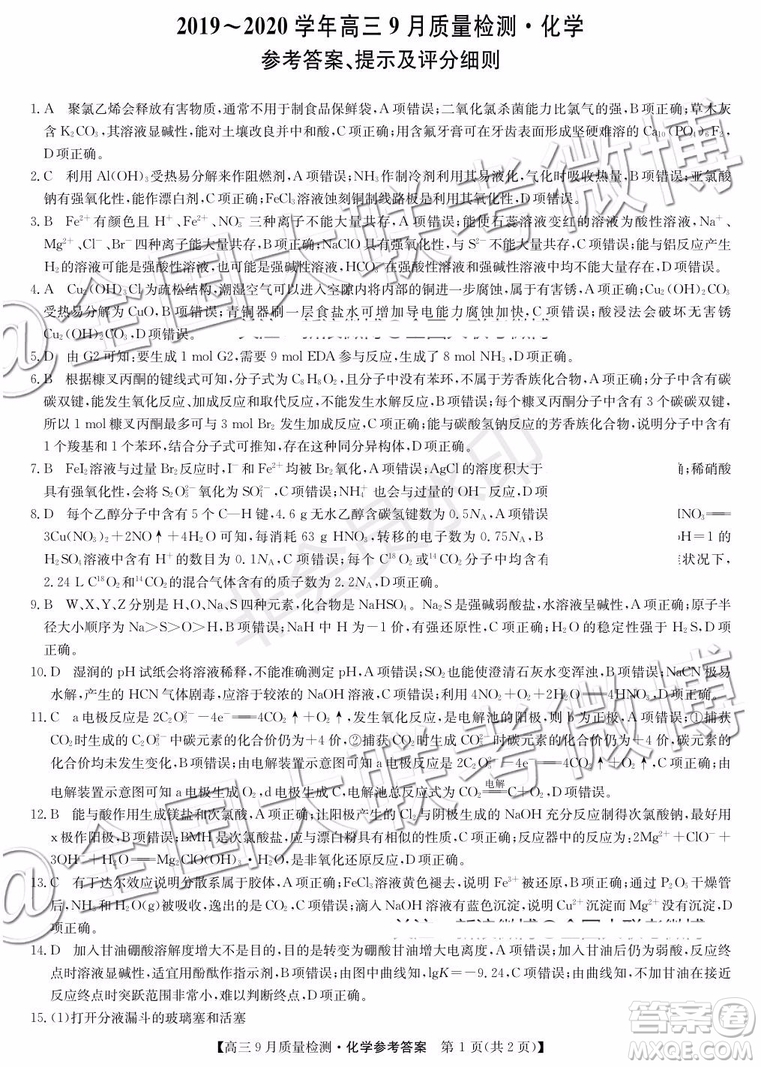 2019～2020学年高三9月质量检测·化学
参考答案、提示及评分细则
1. A 聚氯乙烯会释放有害物质，通常不用于制食品保鲜袋，A项错误；二氧化氯杀菌能力比氯气的强，B项正确；草木灰
含K₂CO₃，其溶液显碱性，能对土壤改良并提供肥效，C项正确；用含氟牙膏可在牙齿表面形成更难溶的Ca₁₀(PO₄)₆F₂，
D项正确。
2. C 利用Al(OH)₃受热易分解来作阻燃剂，A项错误；NH₃作制冷剂利用其易液化，气化时吸收热量，B项错误；亚氯酸
钠有强氧化性，能作漂白剂，C项正确；FeCl₃溶液蚀刻铜制线路板是利用了其氧化性，D项错误。
3. B Fe²⁺有颜色且H⁺、Fe²⁺、NO₃⁻三种离子不能大量共存，A项错误；能使石蕊溶液变红的溶液为酸性溶液，Na⁺、
Mg²⁺、Cl⁻、Br⁻四种离子能大量共存，B项正确；NaClO具有强氧化性，与S²⁻不能大量共存，C项错误；能与铝反应产生
H₂的溶液可能是强酸性溶液，也可能是强碱性溶液，HCO₃⁻在强酸性和强碱性溶液中均不能大量存在，D项错误。
4. A Cu₂(OH)₃Cl为疏松结构，潮湿空气可以进入空隙内将内部的铜进一步腐蚀，属于有害锈，A项正确；Cu₂(OH)₂CO₃
受热易分解为CuO，B项错误；青铜器刷一层食盐水可增加导电能力使腐蚀加快，C项错误；酸浸法会破坏无害锈
Cu₂(OH)₂CO₃，D项错误。
5. D 由G2可知：要生成1 mol G2，需要9 mol EDA参与反应，生成了8 mol NH₃，D项正确。
6. B 根据糠叉丙酮的键线式可知，分子式为C₈H₈O₂，且分子中没有苯环，不属于芳香族化合物，A项错误；分子中含有碳
碳双键，能发生氧化反应、加成反应和取代反应，不能发生水解反应，B项错误；每个糠叉丙酮分子中含有3个碳碳双键，
所以1 mol糠叉丙酮最多可与3 mol Br₂发生加成反应，C项错误；能与碳酸氢钠反应的芳香族化合物，说明分子中含有
1个羧基和1个苯环，结合分子式可知，存在这种同分异构体，D项错误。
7. B FeI₂溶液与过量Br₂反应时，I⁻和Fe²⁺均被Br₂氧化，A项错误；AgCl的溶度积大于
；稀硝酸
具有强氧化性，会将S₂O₃²⁻氧化为SO₄²⁻，C项错误；NH₄⁺也会与过量的OH⁻反应，D项
8. D 每个乙醇分子中含有5个C—H键，4.6 g无水乙醇含碳氢键数为0.5Nₐ，A项错误
NO₃＝
3Cu(NO₃)₂+2NO↑+4H₂O可知，每消耗63 g HNO₃，转移的电子数为0.75Nₐ，B项
H＝1的
H₂SO₄溶液中含有H⁺的数目为0.1Nₐ，C项错误；每个C¹⁸O₂或¹⁴CO₂分子中均含有
状况下，
2.24 L C¹⁸O₂和¹⁴CO₂的混合气体含有的质子数为2.2Nₐ，D项正确。
9. B W、X、Y、Z分别是H、O、Na、S四种元素，化合物是NaHSO₄。Na₂S是强碱弱酸盐，水溶液呈碱性，A项正确；原子半
径大小顺序为Na＞S＞O＞H，B项错误；NaH中H为－1价，有强还原性，C项正确；H₂O的稳定性强于H₂S，D项正确。
10. D 湿润的pH试纸会将溶液稀释，不能准确测定pH，A项错误；SO₂也能使澄清石灰水变浑浊，B项错误；NaCN极易
水解，产生的HCN气体剧毒，应溶解在较浓的NaOH溶液中，C项错误；利用4NO₂+O₂+2H₂O══4HNO₃，D项正确。
11. C a电极反应是2C₂O₅²⁻－4e⁻══4CO₂↑+O₂↑，发生氧化反应，是电解池的阳极，则b为正极，A项错误；①捕获
CO₂时生成的C₂O₅²⁻中碳元素的化合价仍为+4价，②捕获CO₂时生成的CO₃²⁻中碳元素的化合价仍为+4价，碳元素的
化合价均未发生变化，B项错误；由电解装置示意图可知a电极反应是2C₂O₅²⁻－4e⁻══4CO₂↑+O₂↑，C项正确；由
电解装置示意图可知a电极生成O₂，d电极生成C，电解池总反应式为CO₂ 电解══C+O₂，D项错误。
12. B 能与酸作用生成镁盐和次氯酸，A项正确；让阳极产生的Cl₂与阴极生成的NaOH充分反应制得NaClO溶液，最好用
x极作阳极，B项错误；BMH是次氯酸盐，应与漂白粉具有相似的性质，C项正确；反应器中的反应为：2Mg²⁺+ClO⁻+
3OH⁻+H₂O══Mg₂ClO(OH)₃·H₂O，是非氧化还原反应，D项正确。
13. C 有丁达尔效应说明分散系属于胶体，A项正确；FeCl₃溶液黄色褪去，说明Fe³⁺被还原，B项正确；通过P₂O₅干燥管
后，NH₃和H₂O(g)等被吸收，余下一定有N₂，C项错误；滴入浓NaOH溶液有蓝色沉淀，说明Cu²⁺沉淀而Mg²⁺没有沉
淀，D项正确。
14. D 加入甘油硼酸溶解度增大不是目的，目的是转变为硼酸甘油增大电离度，A项错误；硼酸甘油仍为弱酸，滴定终点
时溶液显碱性，适宜用酚酞作指示剂，B项错误；由图中曲线可知，lgK＝－9.24，C项错误；由曲线知，不加入甘油时，突
变范围太小，难以判断终点，D项正确。
15. (1)打开分液漏斗的玻璃塞和活塞
【高三9月质量检测·化学参考答案 第1页(共2页)】
@全国大联考微博
@全国大联考微博
非会员水印
答案圈
MXQE.COM